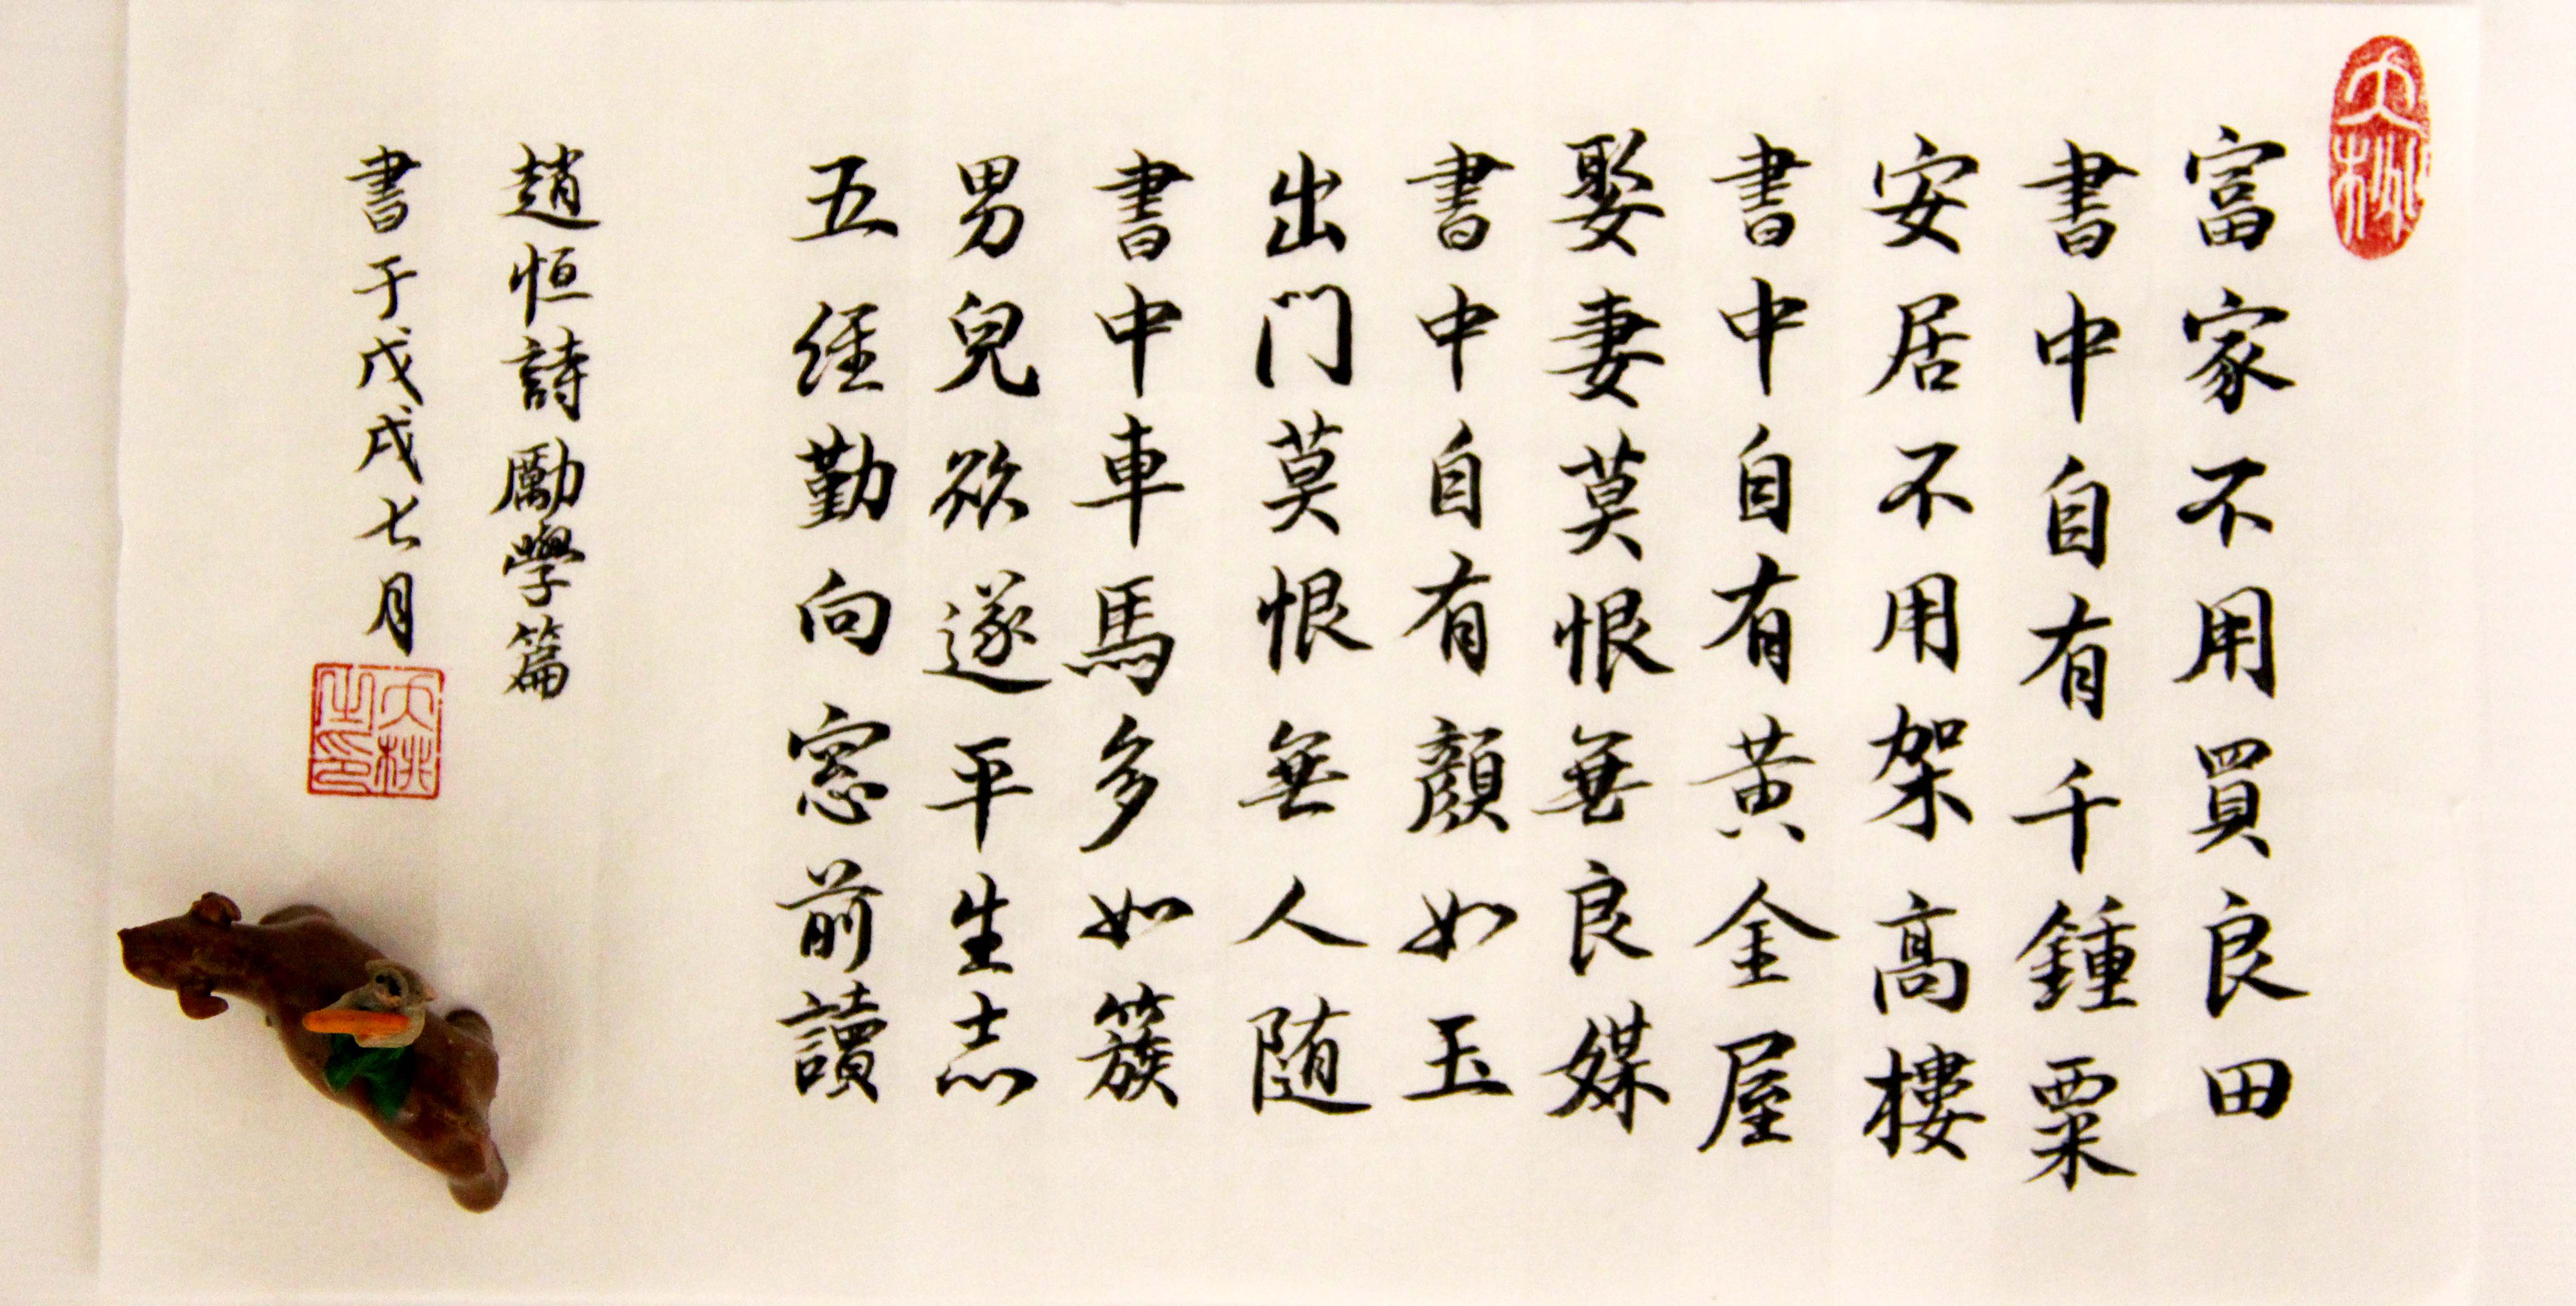 富家不用買良田
書中自有千鍾粟
安居不用架高樓
書中自有黄金屋
娶妻莫恨無良媒
書中自有顏如玉
出门莫恨無人随
書中車馬多如簇
男兒欲遂平生志
五经勤向窓前讀
趙恒詩勵學篇
書于戊戌七月